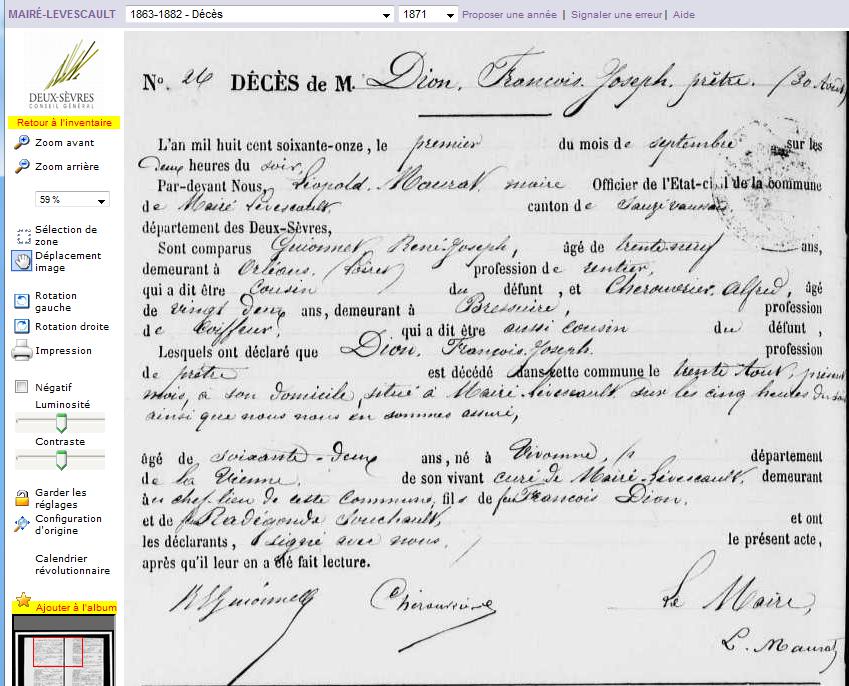 MAIRÉ-LEVESCAULT 1863-1882 - Décès 1871 Proposer une année | Signaler une erreur | Aide
DEUX-SÈVRES
CONSEIL GÉNÉRAL
Retour à l'inventaire
Zoom avant
Zoom arrière
59 %
Sélection de
zone
Déplacement
image
Rotation
gauche
Rotation droite
Impression
Négatif
Luminosité
Contraste
Garder les
réglages
Configuration
d'origine
Calendrier
révolutionnaire
Ajouter à l'album
No. 26 DÉCÈS de M. Dion, François-Joseph, prêtre. (30 Août
L'an mil huit cent soixante-onze, le premier du mois de septembre sur les
Deux heures du soir,
Par-devant Nous, Léopold Maurat, maire Officier de l'Etat-civil de la commune
de Mairé Levescault, canton de Sauzé vaussais
département des Deux-Sèvres,
Sont comparus Guionnet René Joseph, âgé de trente neuf ans,
demeurant à Orléans, (Loiret) profession de rentier,
qui a dit être Cousin du défunt, et Cherouvrier, Alfred, âgé
de vingt deux ans, demeurant à Bressuire, profession
de Coiffeur, qui a dit être aussi cousin du défunt,
Lesquels ont déclaré que Dion, François-Joseph. profession
de prêtre est décédé dans cette commune le trente Août, présent
mois, à son domicile, situé à Mairé-Lévescault, sur les cinq heures du soir
ainsi que nous nous en sommes assuré,
âgé de soixante-deux ans, né à Vivonne, département
de la Vienne. de son vivant curé de Mairé-Lévescault, demeurant
au chef-lieu de cette Commune, fils de feu François Dion,
et de Radégonde Souchault, et ont
les déclarants, signé avec nous, le présent acte,
après qu'il leur en a été fait lecture.
Guionnet Cherouvrier Le Maire,
L. Maurat